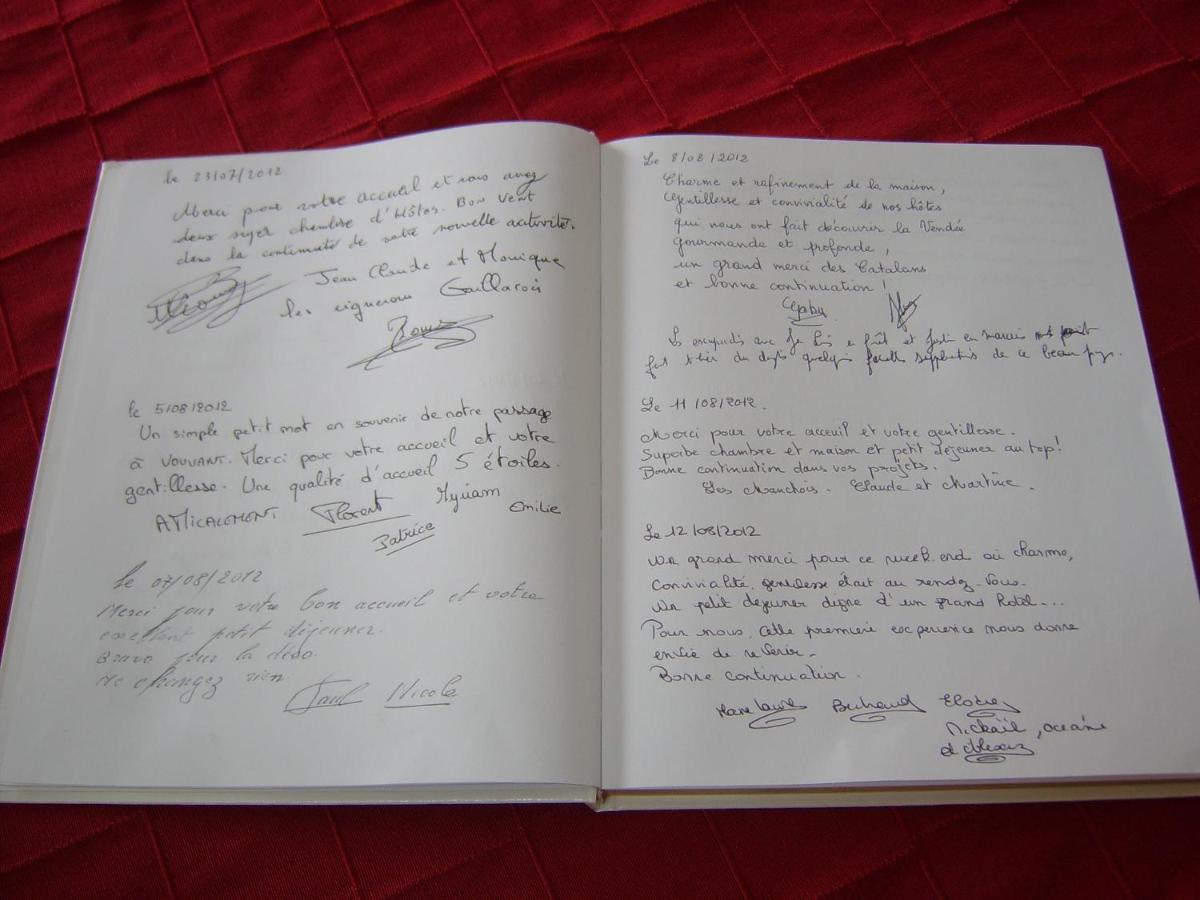 le 23/07/2012
Merci pour votre accueil et vous avez
deux super chambre d'Hôtes. Bon vent
dans la continuité de votre nouvelle activité.
Jean Claude et Monique
les vignerons Gaillacois
le 5/08/2012
Un simple petit mot en souvenir de notre passage
à VOUVANT. Merci pour votre accueil et votre
gentillesse. Une qualité d'accueil 5 étoiles.
AMICALEMENT Florent Myriam Emilie
Patrice
Le 07/08/2012
Merci pour votre bon accueil et votre
excellent petit déjeuner.
Bravo pour la déco.
Ne changez rien.
Paul Nicole
Le 8/08/2012
Charme et rafinement de la maison,
Gentillesse et convivialité de nos hôtes
qui nous ont fait découvrir la Vendée
gourmande et profonde,
un grand merci des Catalans
et bonne continuation !
Gaby
et en marais
fort de ce beau pays.
Le 11/08/2012.
Merci pour votre acceuil et votre gentillesse.
Superbe chambre et maison et petit déjeuner au top!
Bonne continuation dans vos projets.
Les Manchois. Claude et Martine.
Le 12/08/2012
Un grand merci pour ce week.end où charme,
Convivialité, gentillesse était au rendez-vous.
Un petit dejeuner digne d'un grand hotel...
Pour nous, cette première experience nous donne
envie de revenir.
Bonne continuation.
Marie Laure Bertrand Elodie
Mickaïl, océane
et